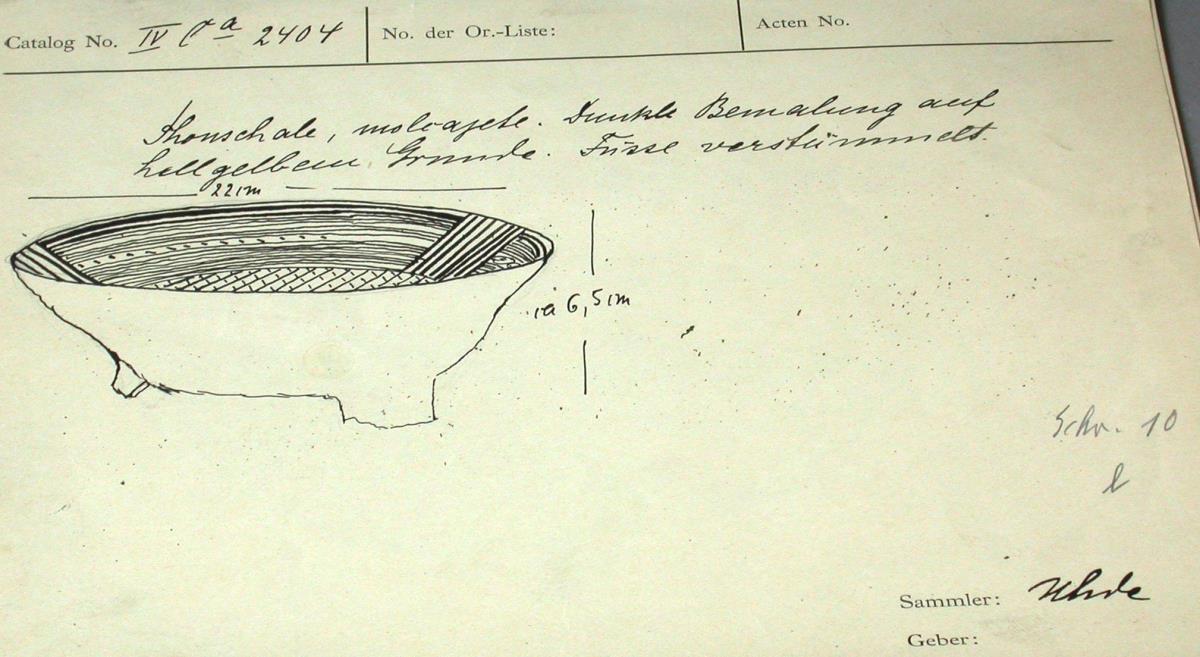 Catalog No. IV Ca 2404 No. der Or.-Liste: Acten No.
Thonschale, molcajete. Dunkle Bemalung auf
hellgelbem Grunde. Füsse verstümmelt.
22 cm
ca 6,5 cm
Schr. 10
l
Sammler: Uhde
Geber: